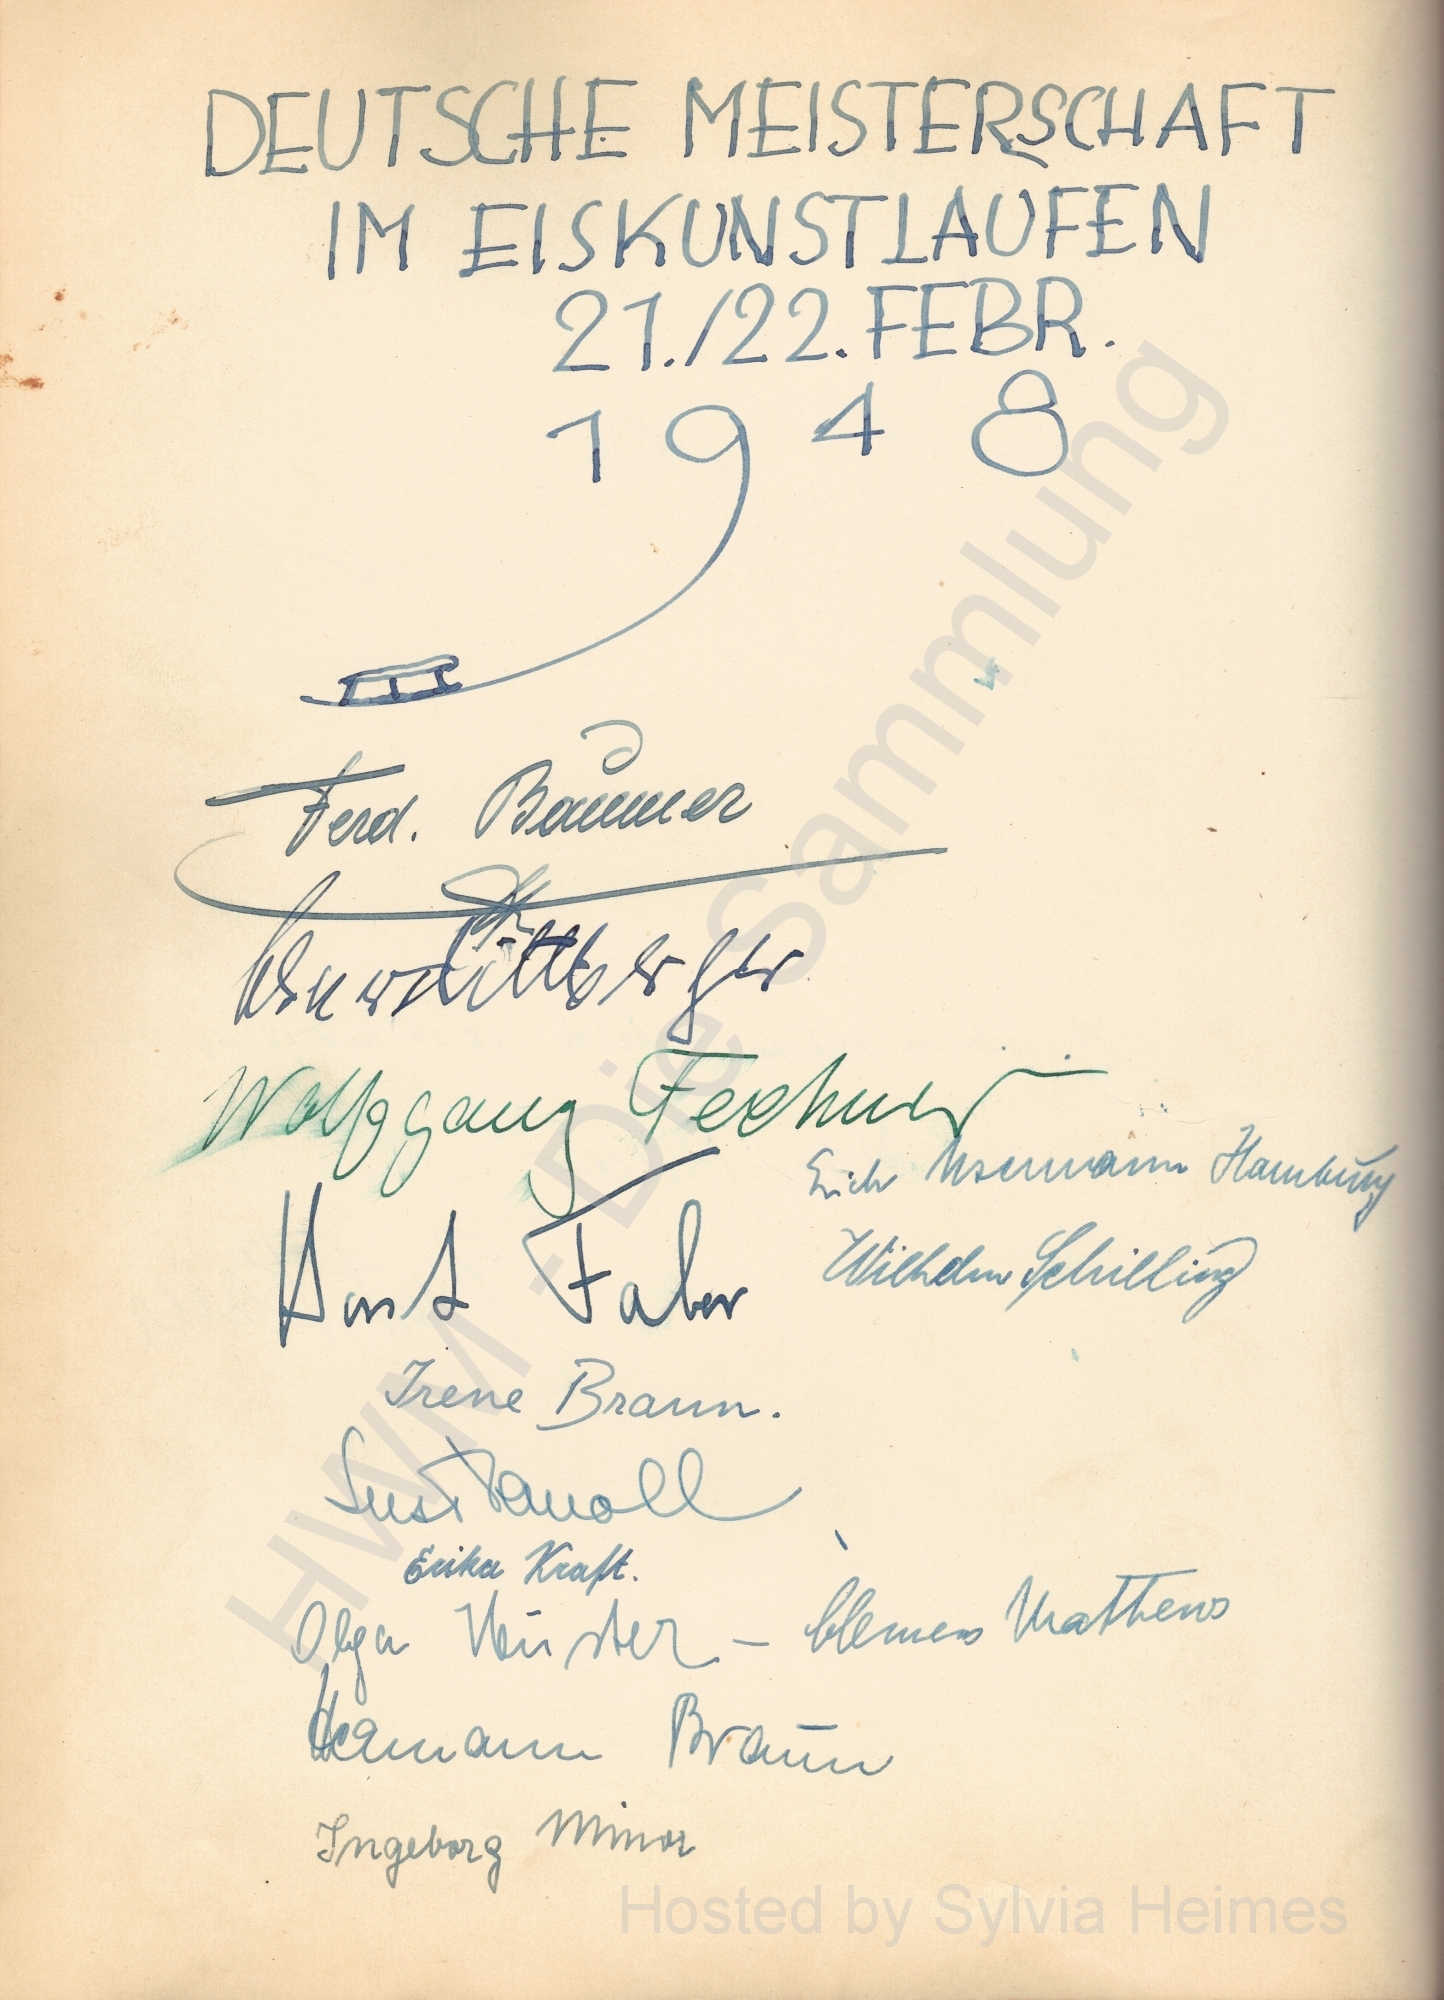 DEUTSCHE MEISTERSCHAFT
IM EISKUNSTLAUFEN
21./22. FEBR.
1948
Ferd. Bäumer
Werner Rittberger
Wolfgang Fechner
Erich Hamburg
Horst Faber
Wilhelm Schilling
Irene Braun.
Susi
Erika Kraft.
Olga – Clemens Matthews
Hermann Braun
Ingeborg Minor
HWM - Die Sammlung
Hosted by Sylvia Heimes